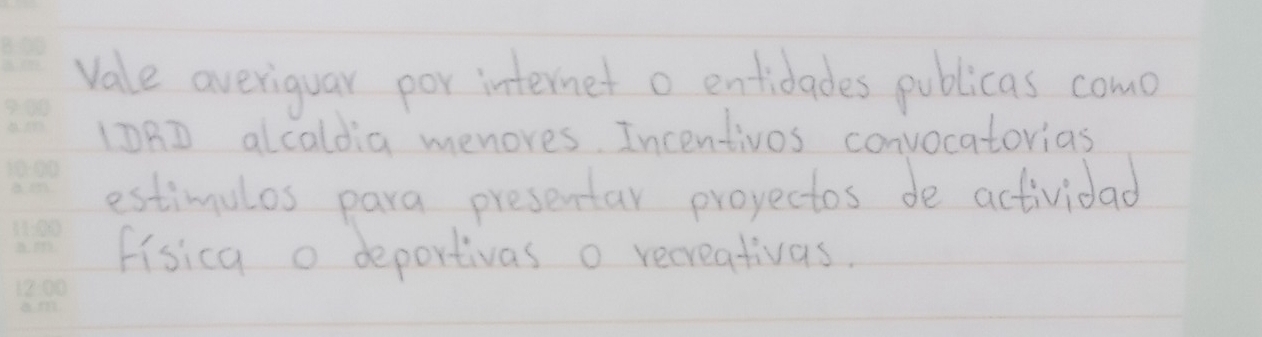 8:00
a.m.
Vale averiguar por internet o entidades publicas como
9:00
a.m.
IDRD alcaldia menores. Incentivos convocatorias
10:00
a.m.
estimulos para presentar proyectos de actividad
11:00
a.m.
física o deportivas o recreativas.
12:00
a.m.